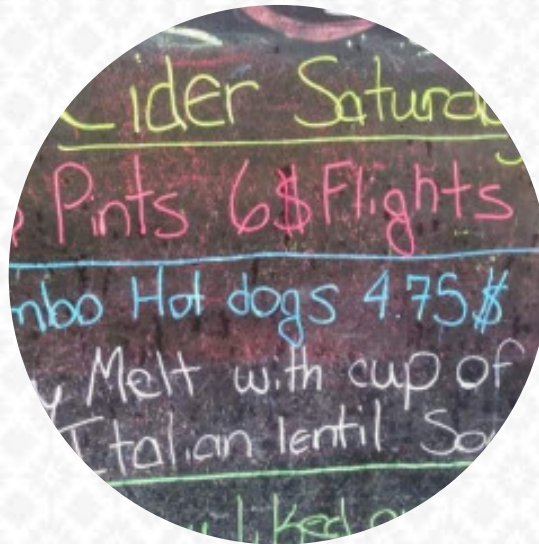 ider Satur
Pints 6$ Flights
mbo Hot dogs 4.75$
Melt with cup of
Italian lentil So
liked